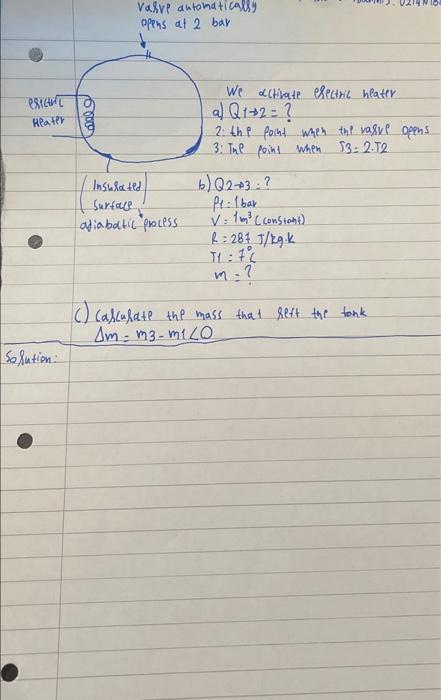 valve automatically
opens at 2 bar
electric
Heater
We activate electric heater
a) Q1→2 = ?
2: the point when the valve opens
3: The point when T3 = 2.T2
(Insulated
surface)
adiabatic process
b) Q2→3 = ?
P1 = 1 bar
V = 1m³ (constant)
R = 287 J/kg.K
T1 = 7°C
m = ?
c) Calculate the mass that left the tank
Δm = m3 - m1 < 0
Solution: